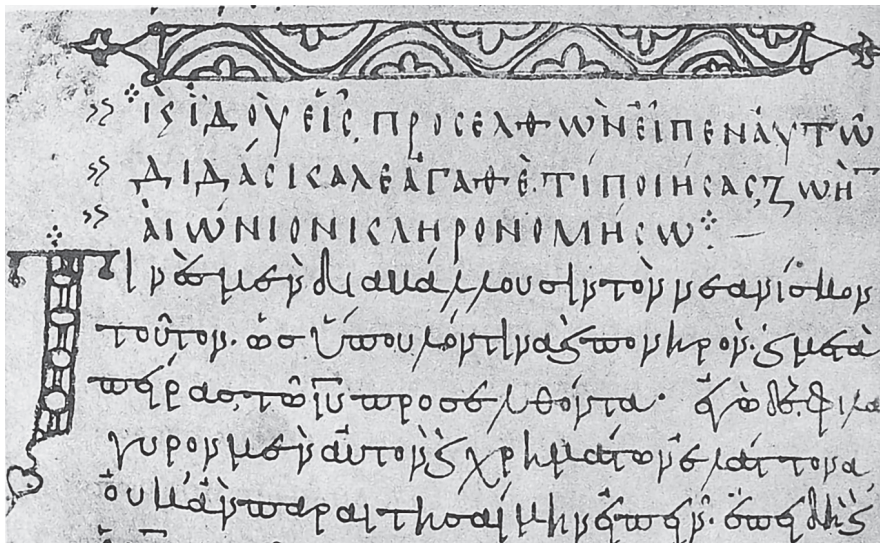 Ϗ ἸΔΟῪ ΕἿϹ, ΠΡΟϹΕΛΘῺΝ ΕἾΠΕΝ ἈΥΤΩ͂
ΔΙΔΆϹΚΑΛΕ ἈΓΑΘῈ· ΤΊ ΠΟΙΉϹΑϹ, ΖΩῊ̅
ἈΙΏΝΙΟΝ ΚΛΗΡΟΝΟΜΉϹΩ ⁘
Τινὲς μὲν διαβάλλουσιν τὸν νεανίσκον
τοῦτον· ὡς ὕπουλόν τινα ϗ πονηρὸν· ϗ μετὰ
πείρας, τῶ ι̅υ̅ προσελθόντα· ἐγὼ δὲ, φιλα
γυρον μὲν ἀυτὸν ϗ χρημάτων ἐλάττονα
ὀυκ ἂν παραιτησαίμην ἐιπεῖν· ἐπειδὴ ϗ